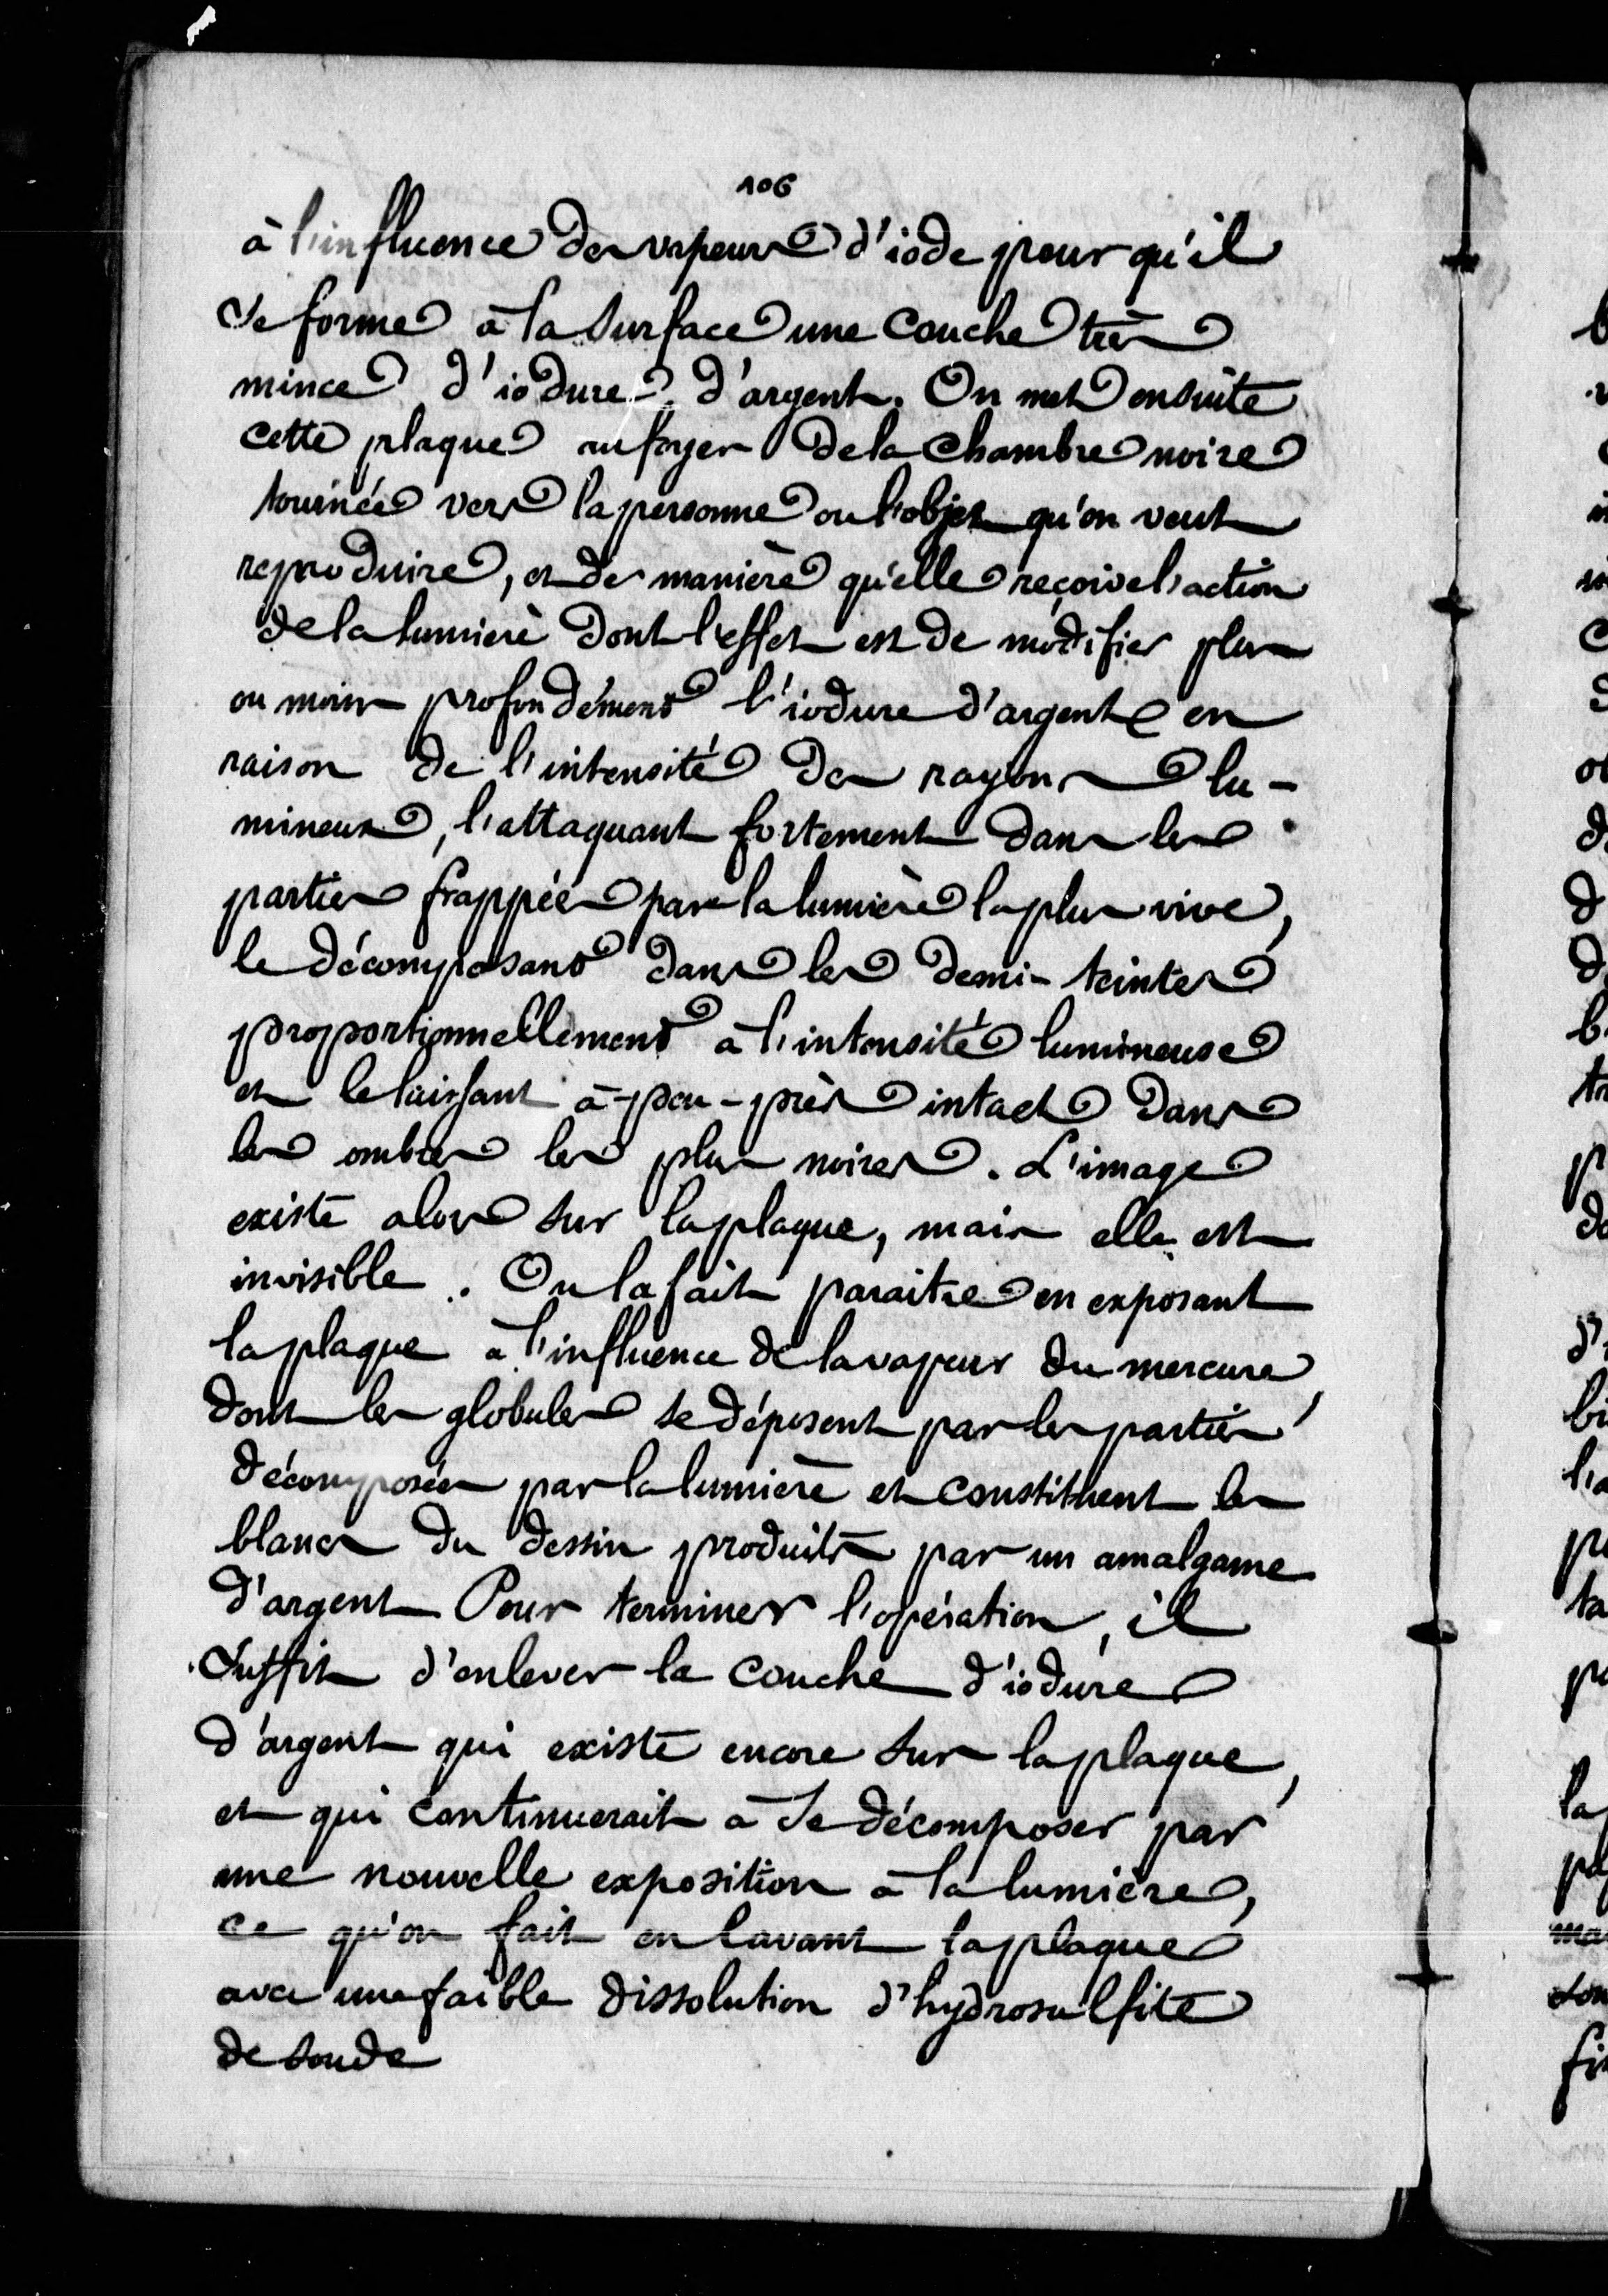 106
à l'influence des vapeurs d'iode pour qu'il
se forme à la surface une couche très
mince d'iodure d'argent. On met ensuite
cette plaque au foyer de la chambre noire
tournée vers la personne ou l'objet qu'on veut
reproduire, et de manière qu'elle reçoive l'action
de la lumière dont l'effet est de modifier plus
ou moins profondément l'iodure d'argent en
raison de l'intensité des rayons lu-
mineux, l'attaquant fortement dans les
parties frappées par la lumière la plus vive,
le décomposant dans les demi-teintes
proportionnellement à l'intensité lumineuse
et le laissant à-peu-près intact dans
les ombres les plus noires. L'image
existe alors sur la plaque, mais elle est
invisible. On la fait paraitre en exposant
la plaque à l'influence de la vapeur du mercure,
dont les globules se déposent par les parties
décomposées par la lumière et constituent les
blancs du dessin produits par un amalgame
d'argent Pour terminer l'opération, il
suffit d'enlever la couche d'iodure
d'argent qui existe encore sur la plaque,
et qui continuerait à se décomposer par
une nouvelle exposition à la lumière,
ce qu'on fait en lavant la plaque
avec une faible dissolution d'hydrosulfite
de soude